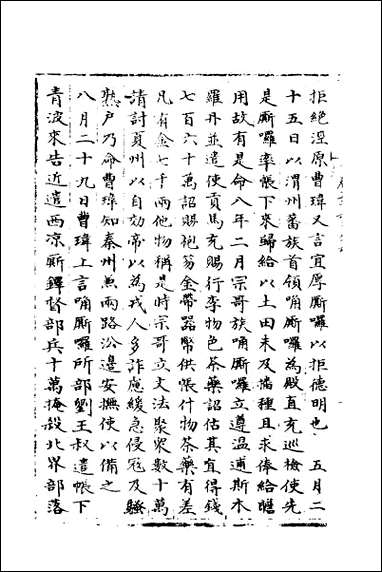 拒絶涇原曹瑋又言宜厚廝囉以拒德明也　五月二
十五日以渭州蕃族首領唃廝囉為殿直充巡檢使先
是廝囉率帳下來歸給以土田未及播種且求俸給贍
用故有是命八年二月宗哥族唃廝囉立遵温逋斯本
羅丹並遣使貢馬充賜行李物色茶藥詔估其宜得錢
七百六十萬詔賜袍笏金帶器幣供帳什物茶藥有差
凡有金七千兩他物稱是時宗哥立文法聚衆數十萬
請討夏州以自効帝以為戎人多詐應緩急侵寇及騷
熟户乃命曹瑋知秦州兼兩路沿邊安撫使以備之
八月二十九日曹瑋上言唃廝囉所部劉王叔遣帳下
青波來告近遣西涼廝鐸督部兵十萬掩殺北界部落